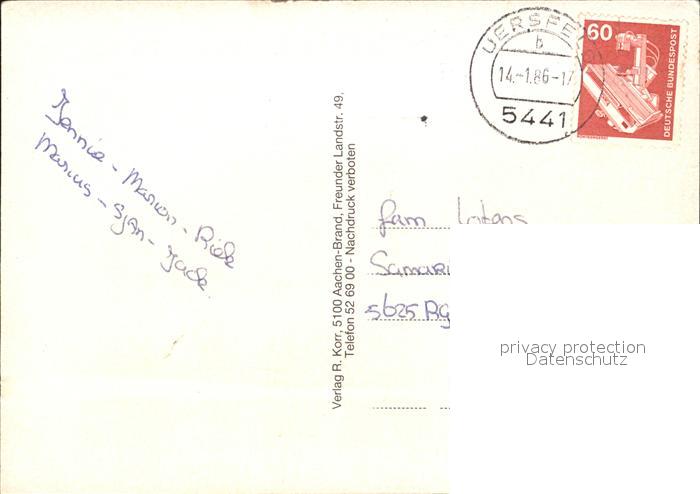 Jennie - Marion - Riek
Marius - Sjan - Jack
Verlag R. Korr, 5100 Aachen-Brand, Freunder Landstr. 49,
Telefon 52 69 00 - Nachdruck verboten
UERSFE
b
14.-1.86-17
5441
60
DEUTSCHE BUNDESPOST
fam
Samari
5625 RG
privacy protection
Datenschutz